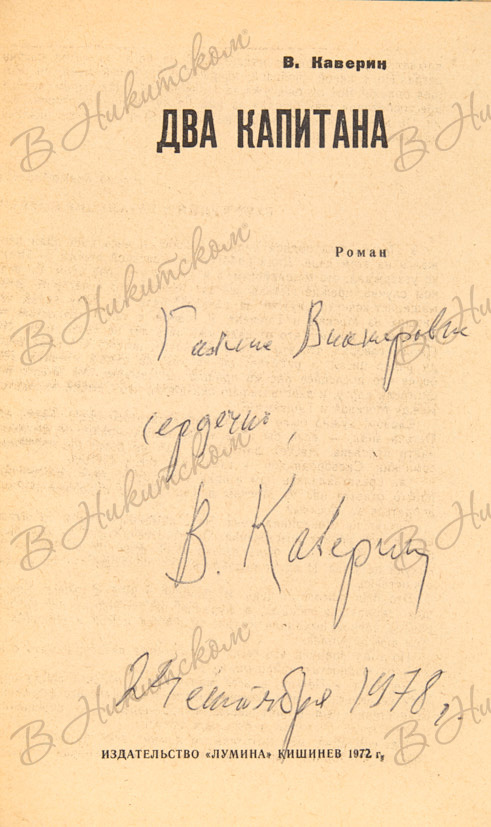 В. Каверин
ДВА КАПИТАНА
Роман
Галине Викторовне
сердечно,
В. Каверин
сентября 1978 г.
ИЗДАТЕЛЬСТВО «ЛУМИНА» КИШИНЕВ 1972 г.
В Никитском
В Никитском
В Никитском
В Никитском
В Никитском